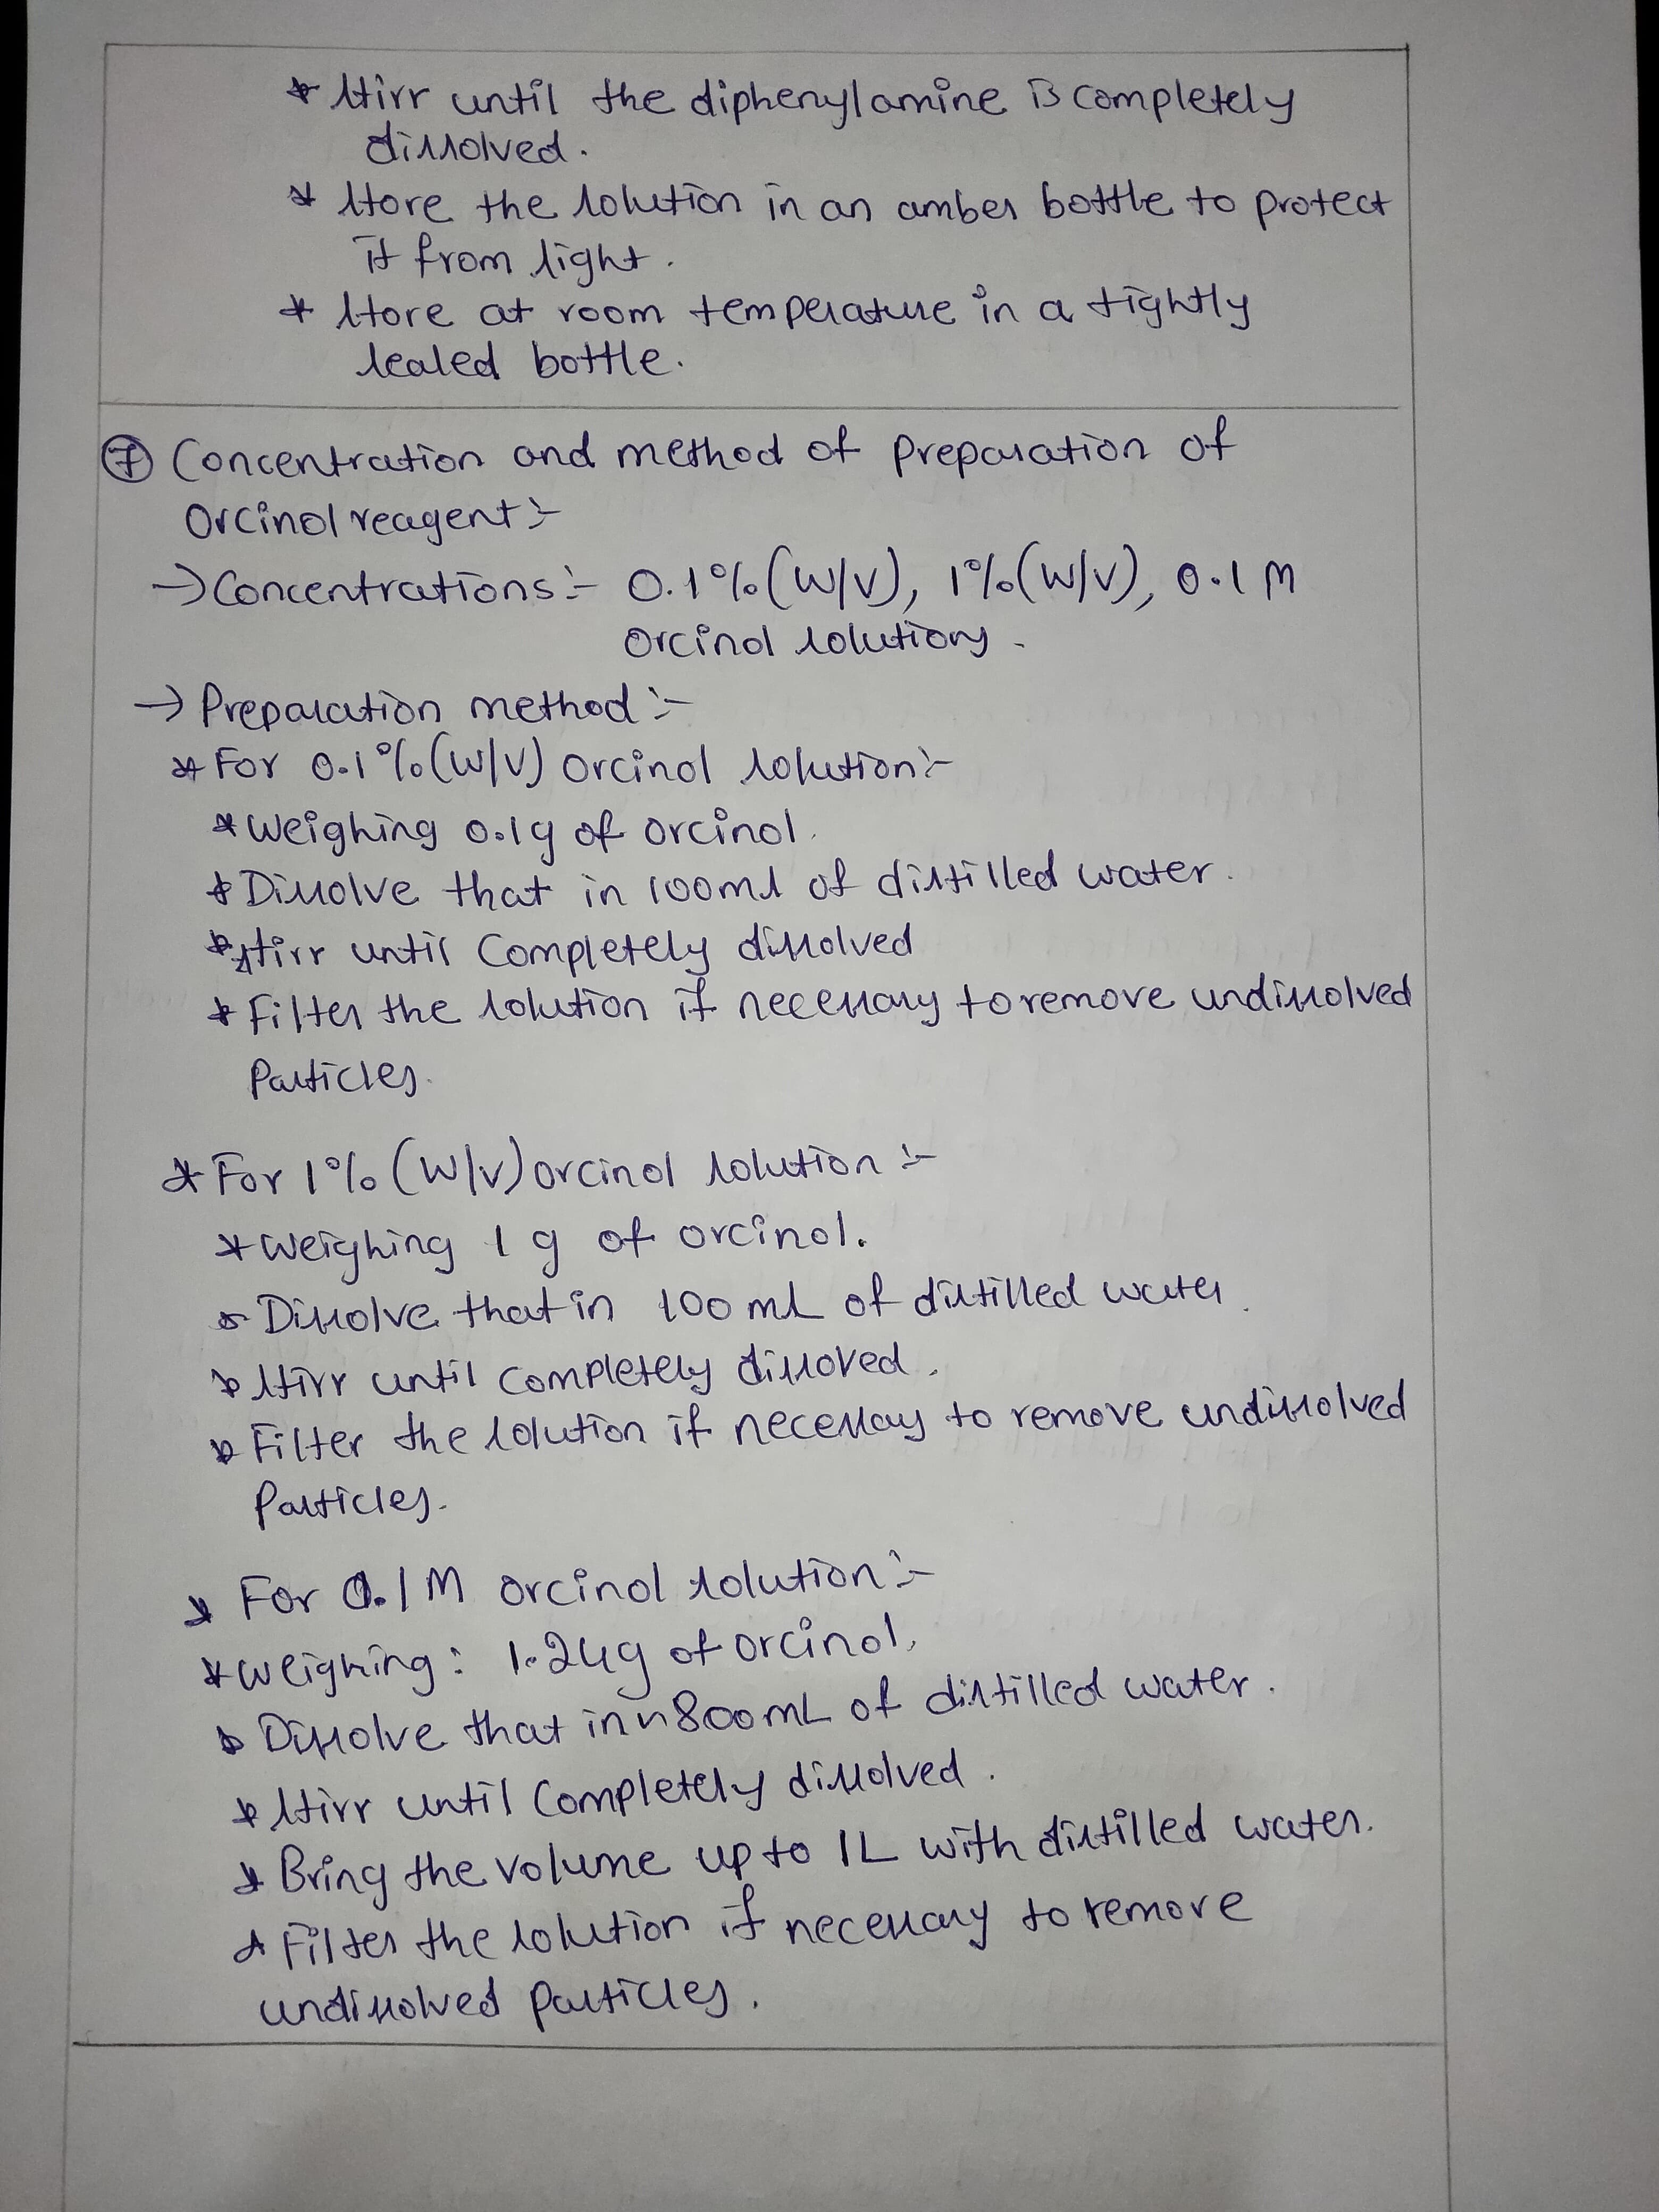 * Stirr until the diphenylamine is completely
dissolved.
* Store the solution in an amber bottle to protect
it from light.
* Store at room temperature in a tightly
sealed bottle.
⑦ Concentration and method of preparation of
Orcinol reagent :-
→ Concentrations :- 0.1% (W/V), 1% (W/V), 0.1 M
Orcinol solutions.
→ Preparation method :-
* For 0.1% (W/V) Orcinol solution :-
* Weighing 0.1g of orcinol.
* Dissolve that in 100ml of distilled water.
* Stirr until Completely dissolved
* Filter the solution if necessary to remove undissolved
Particles.
* For 1% (W/V) orcinol solution :-
* Weighing 1 g of orcinol.
* Dissolve that in 100 mL of distilled water.
* Stirr until completely dissoved.
* Filter the solution if necessary to remove undissolved
Particles.
* For 0.1 M orcinol solution :-
* Weighing : 1.24g of orcinol.
* Dissolve that in ~800 mL of distilled water.
* Stirr until Completely dissolved.
* Bring the volume up to 1L with distilled water.
* Filter the solution if necessary to remove
undissolved particles.